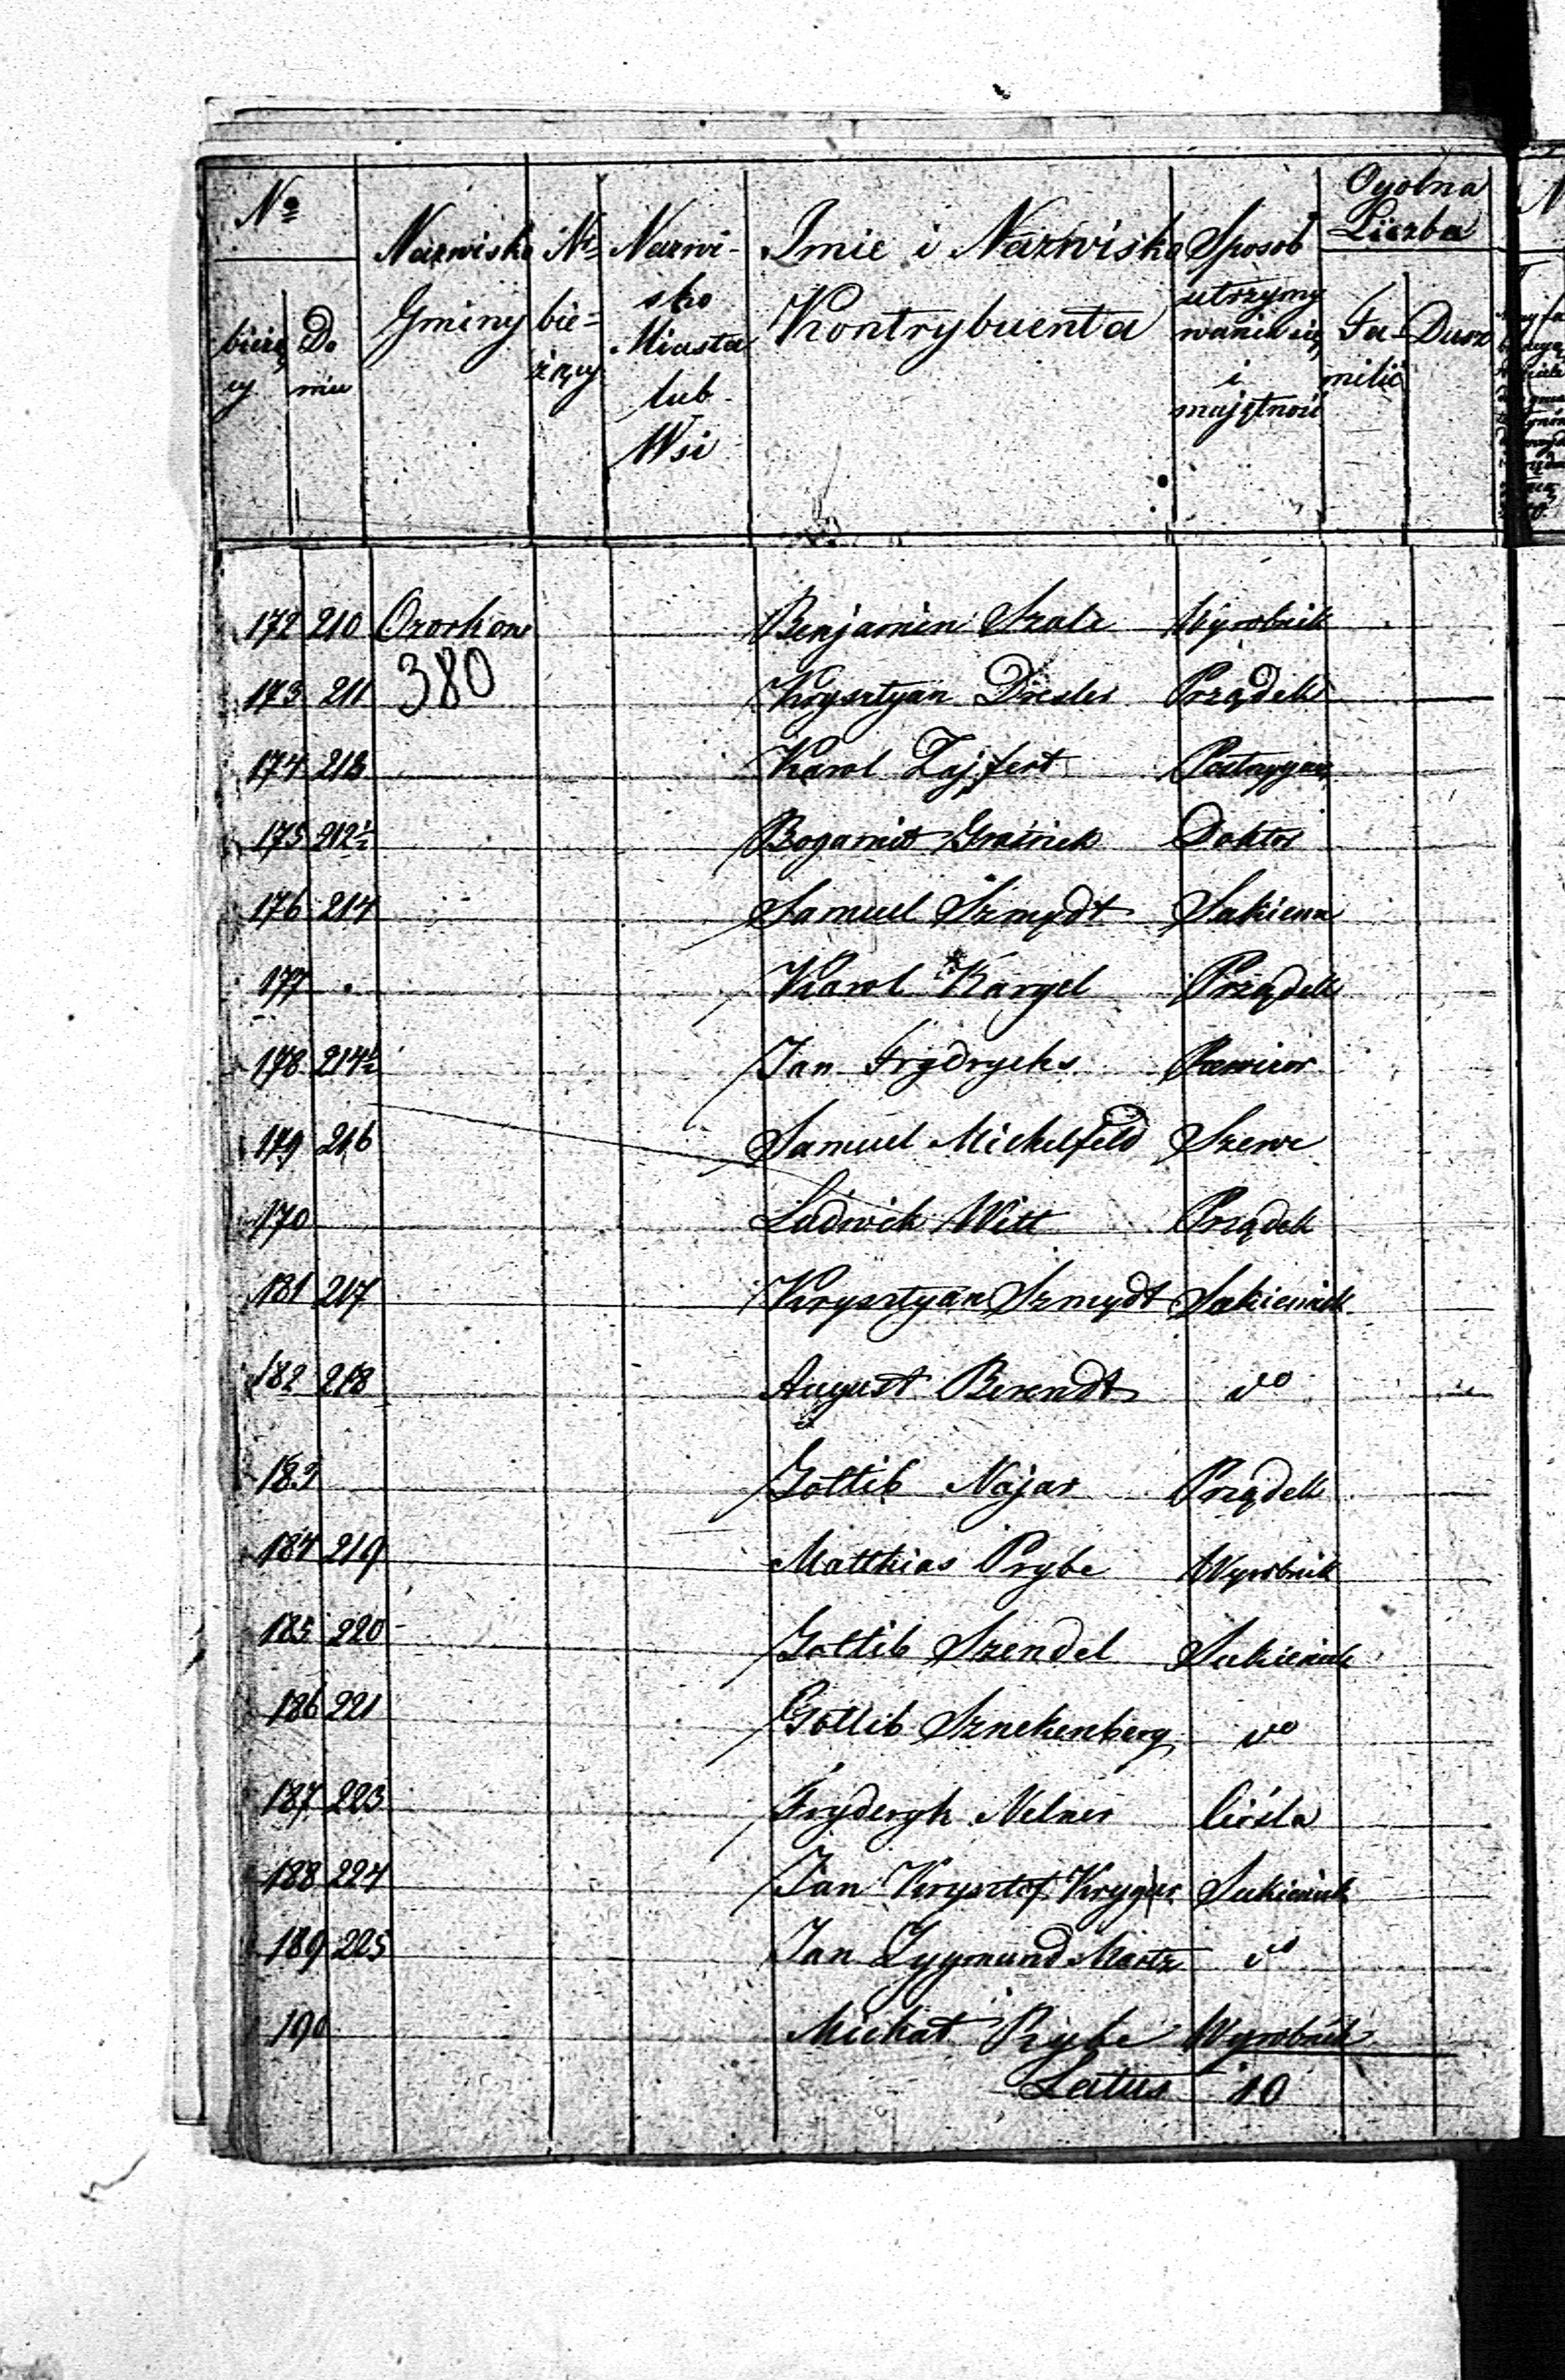 No
bieżący
Domu
Nazwisko Gminy
No bieżący
Nazwisko Miasta lub Wsi
Imie i Nazwisko Kontrybuenta
Sposob utrzymywania się i majętność
Ogolna Liczba
Familii
Dusz
172 210 Ozorkow Benjamin Szolc Wyrobnik
380
173 211 Krysztyan Dresler Prządek
174 213 Karol Zajfert
175 212½ Bogumił Doktor
176 214 Samuel Szmydt Sukienn
177 Karol Kargel Prządek
178 214½ Jan Frydrychs
179 216 Samuel Michelfeld Szewc
170 Ludwik Witt Prządek
181 217 Krysztyan Szmydt Sukiennik
182 218 August Berendt do
183 Gottlib Najar Prządek
184 219 Matthias Prybe Wyrobnik
185 220 Gottlib Szendel Sukiennik
186 221 Gottlib Sznekenberg do
187 223 Fryderyk Nelner Cieśla
188 224 Jan Krysztof Kryger Sukiennik
189 225 Jan Zygmund Martz do
190 Michał Prybe Wyrobnik
Latus 10